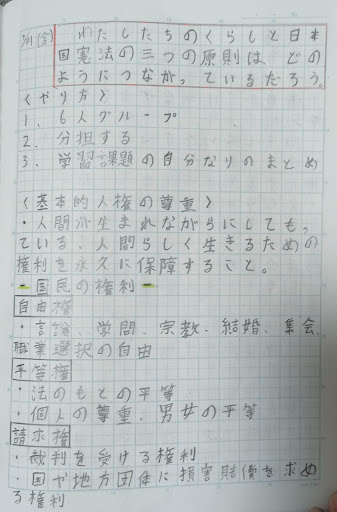 5/31(金)
わたしたちのくらしと日本
国憲法の三つの原則は、どの
ようにつながっているだろう。
〈やり方〉
1、6人グループ
2、分担する
3、学習課題の自分なりのまとめ
〈基本的人権の尊重〉
・人間が生まれながらにしても、
ている、人間らしく生きるための
権利を永久に保障すること。
-国民の権利-
自由権
・言論、学問、宗教、結婚、集会、
職業選択の自由
平等権
・法のもとの平等
・個人の尊重、男女の平等
請求権
・裁判を受ける権利
・国や地方団体に損害賠償を求め
る権利